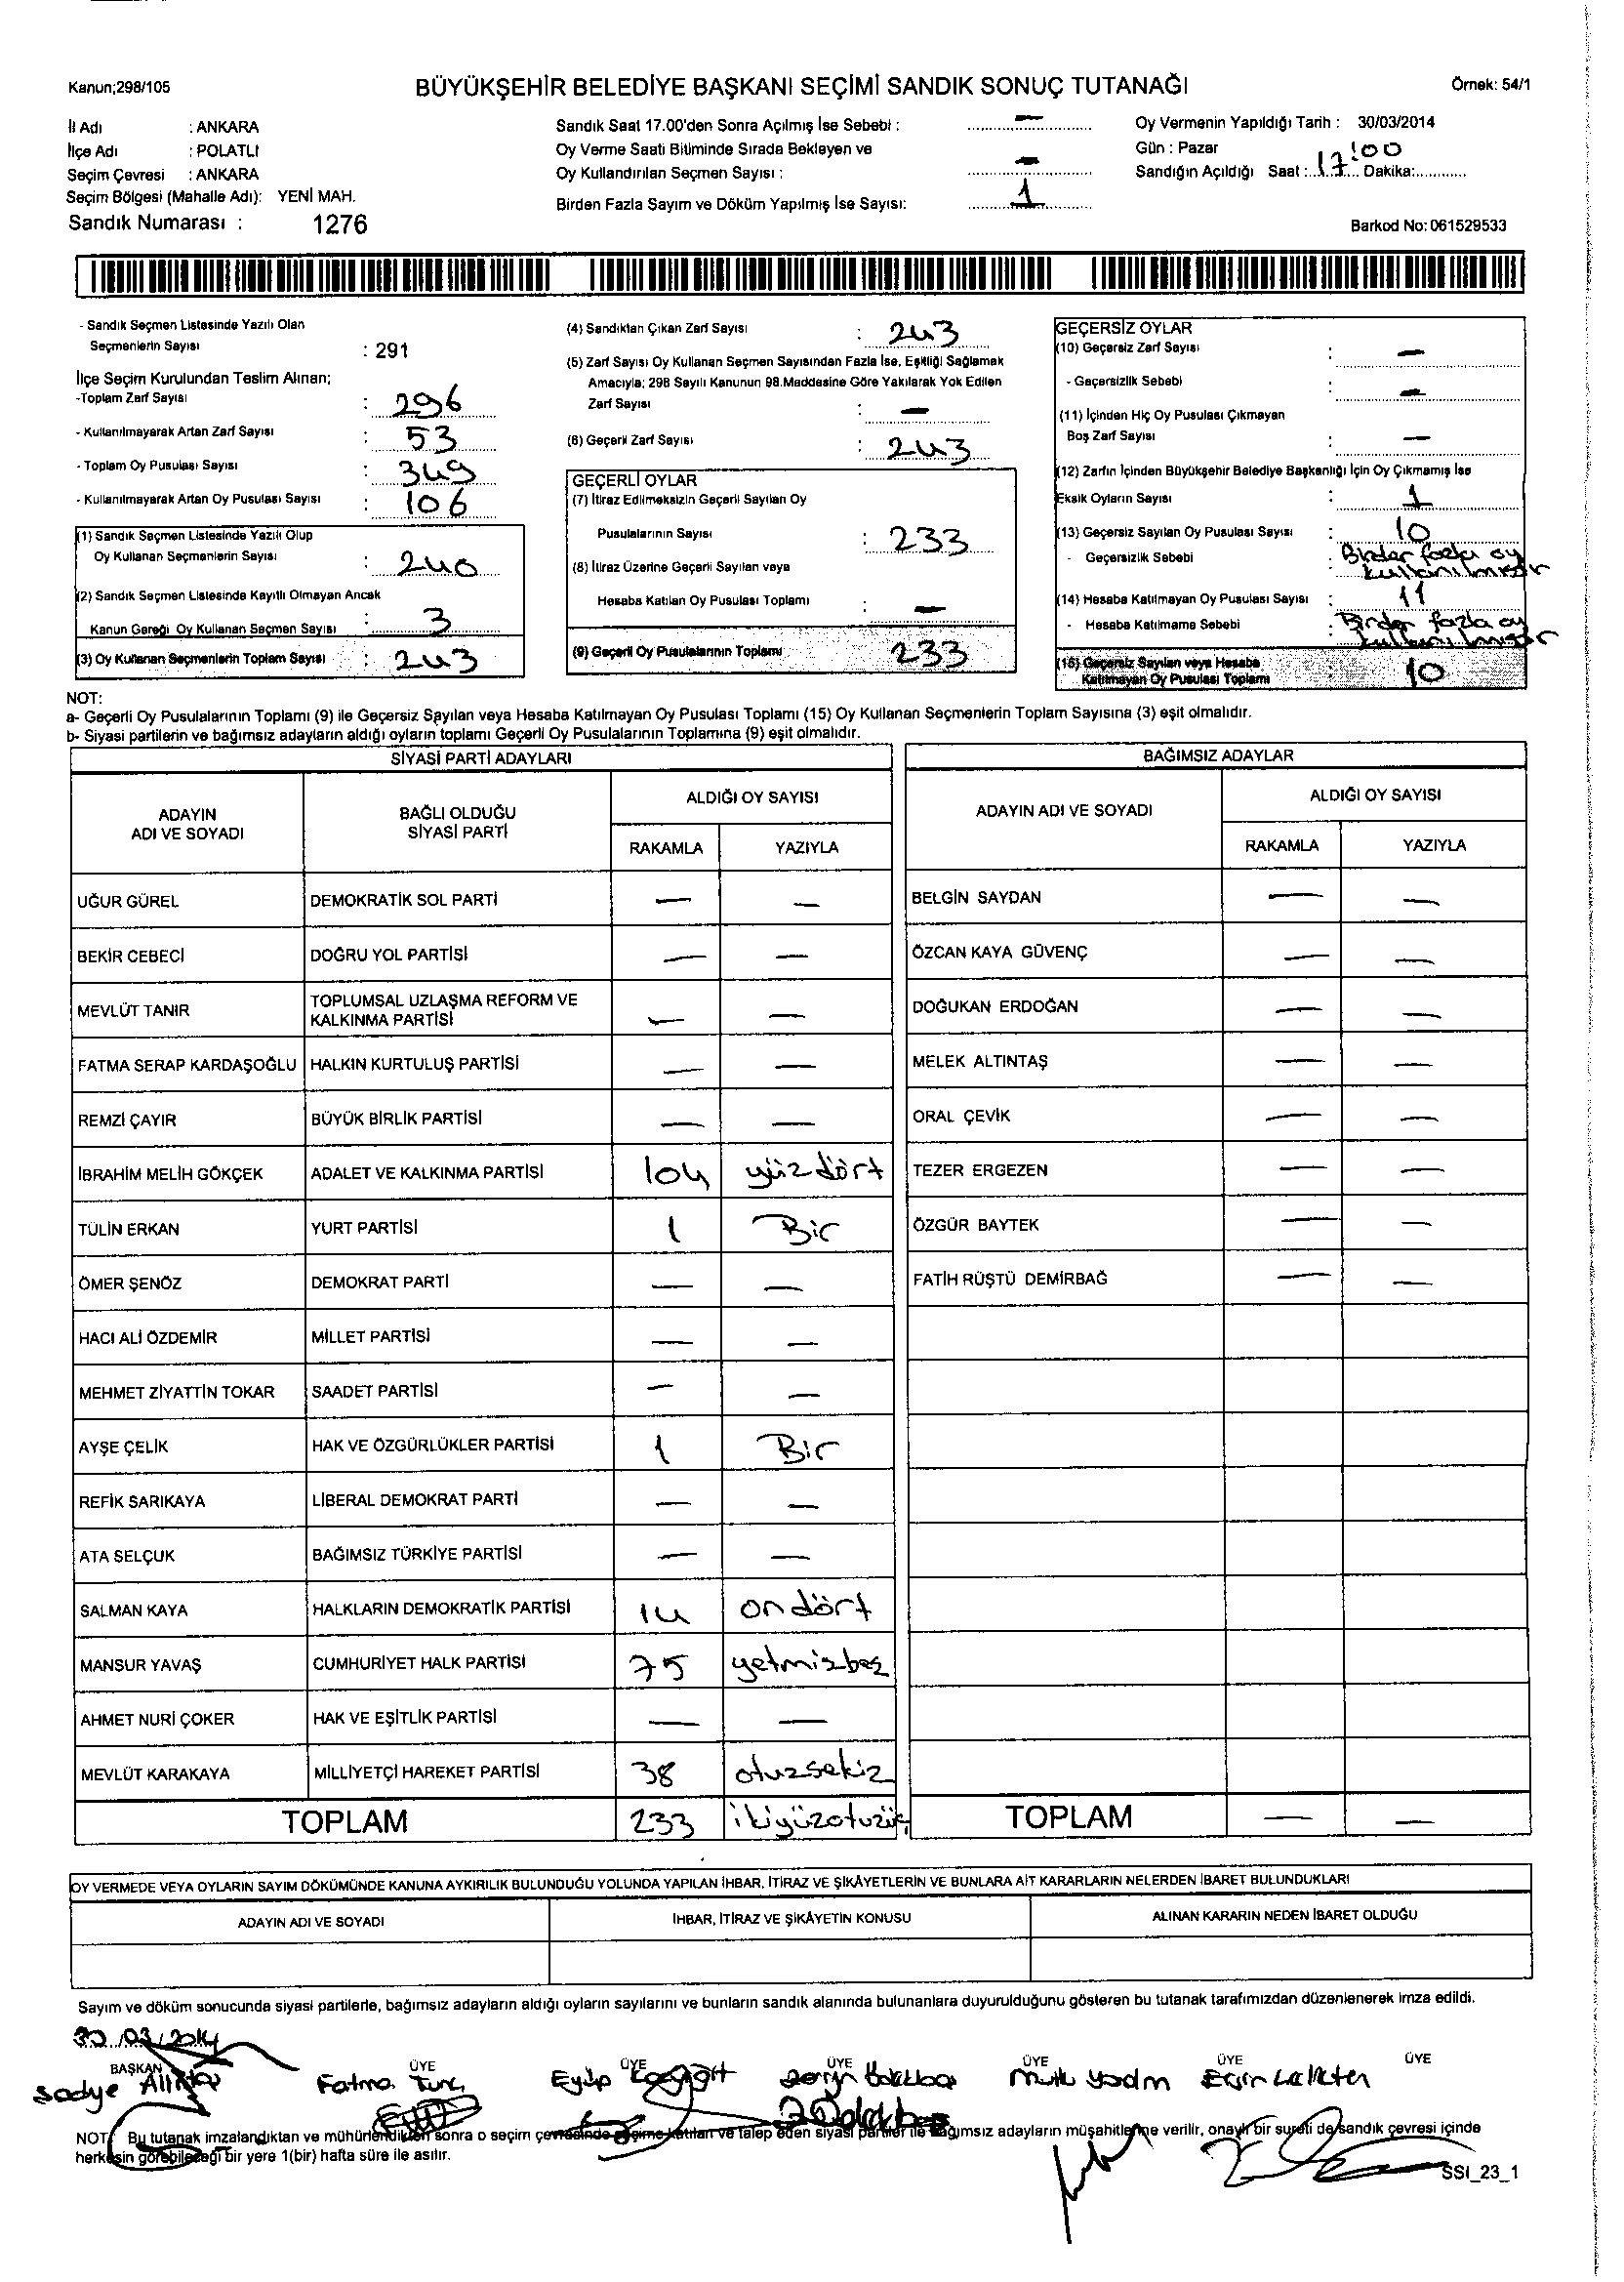 Kanun;298/105
BÜYÜKŞEHİR BELEDİYE BAŞKANI SEÇİMİ SANDIK SONUÇ TUTANAĞI
Örnek: 54/1
İl Adı : ANKARA
İlçe Adı : POLATLI
Seçim Çevresi : ANKARA
Seçim Bölgesi (Mahalle Adı): YENİ MAH.
Sandık Numarası : 1276
Sandık Saat 17.00'den Sonra Açılmış İse Sebebi : –
Oy Verme Saati Bitiminde Sırada Bekleyen ve
Oy Kullandırılan Seçmen Sayısı : –
Birden Fazla Sayım ve Döküm Yapılmış İse Sayısı: 1
Oy Vermenin Yapıldığı Tarih : 30/03/2014
Gün : Pazar
Sandığın Açıldığı Saat : 17:00 Dakika:
Barkod No: 061529533
- Sandık Seçmen Listesinde Yazılı Olan
Seçmenlerin Sayısı : 291
İlçe Seçim Kurulundan Teslim Alınan;
-Toplam Zarf Sayısı : 296
- Kullanılmayarak Artan Zarf Sayısı : 53
- Toplam Oy Pusulası Sayısı : 349
- Kullanılmayarak Artan Oy Pusulası Sayısı : 106
(1) Sandık Seçmen Listesinde Yazılı Olup
Oy Kullanan Seçmenlerin Sayısı : 240
(2) Sandık Seçmen Listesinde Kayıtlı Olmayan Ancak
Kanun Gereği Oy Kullanan Seçmen Sayısı : 3
(3) Oy Kullanan Seçmenlerin Toplam Sayısı : 243
(4) Sandıktan Çıkan Zarf Sayısı : 243
(5) Zarf Sayısı Oy Kullanan Seçmen Sayısından Fazla İse, Eşitliği Sağlamak
Amacıyla; 298 Sayılı Kanunun 98.Maddesine Göre Yakılarak Yok Edilen
Zarf Sayısı : –
(6) Geçerli Zarf Sayısı : 243
GEÇERLİ OYLAR
(7) İtiraz Edilmeksizin Geçerli Sayılan Oy
Pusulalarının Sayısı : 233
(8) İtiraz Üzerine Geçerli Sayılan veya
Hesaba Katılan Oy Pusulası Toplamı : –
(9) Geçerli Oy Pusulalarının Toplamı 233
GEÇERSİZ OYLAR
(10) Geçersiz Zarf Sayısı : –
- Geçersizlik Sebebi : –
(11) İçinden Hiç Oy Pusulası Çıkmayan
Boş Zarf Sayısı : –
(12) Zarfın İçinden Büyükşehir Belediye Başkanlığı İçin Oy Çıkmamış İse
Eksik Oyların Sayısı : 1
(13) Geçersiz Sayılan Oy Pusulası Sayısı : 10
- Geçersizlik Sebebi : Birden fazla oy
kullanılmıştır
(14) Hesaba Katılmayan Oy Pusulası Sayısı : 11
- Hesaba Katılmama Sebebi : Birden fazla oy
kullanılmıştır
(15) Geçersiz Sayılan veya Hesaba
Katılmayan Oy Pusulası Toplamı : 10
NOT:
a- Geçerli Oy Pusulalarının Toplamı (9) ile Geçersiz Sayılan veya Hesaba Katılmayan Oy Pusulası Toplamı (15) Oy Kullanan Seçmenlerin Toplam Sayısına (3) eşit olmalıdır.
b- Siyasi partilerin ve bağımsız adayların aldığı oyların toplamı Geçerli Oy Pusulalarının Toplamına (9) eşit olmalıdır.
SİYASİ PARTİ ADAYLARI
ADAYIN ADI VE SOYADI
BAĞLI OLDUĞU SİYASİ PARTİ
ALDIĞI OY SAYISI
RAKAMLA YAZIYLA
UĞUR GÜREL DEMOKRATİK SOL PARTİ – –
BEKİR CEBECİ DOĞRU YOL PARTİSİ – –
MEVLÜT TANIR TOPLUMSAL UZLAŞMA REFORM VE KALKINMA PARTİSİ – –
FATMA SERAP KARDAŞOĞLU HALKIN KURTULUŞ PARTİSİ – –
REMZİ ÇAYIR BÜYÜK BİRLİK PARTİSİ – –
İBRAHİM MELİH GÖKÇEK ADALET VE KALKINMA PARTİSİ 104 yüzdört
TÜLİN ERKAN YURT PARTİSİ 1 Bir
ÖMER ŞENÖZ DEMOKRAT PARTİ – –
HACI ALİ ÖZDEMİR MİLLET PARTİSİ – –
MEHMET ZİYATTİN TOKAR SAADET PARTİSİ – –
AYŞE ÇELİK HAK VE ÖZGÜRLÜKLER PARTİSİ 1 Bir
REFİK SARIKAYA LİBERAL DEMOKRAT PARTİ – –
ATA SELÇUK BAĞIMSIZ TÜRKİYE PARTİSİ – –
SALMAN KAYA HALKLARIN DEMOKRATİK PARTİSİ 14 ondört
MANSUR YAVAŞ CUMHURİYET HALK PARTİSİ 75 yetmişbeş
AHMET NURİ ÇOKER HAK VE EŞİTLİK PARTİSİ – –
MEVLÜT KARAKAYA MİLLİYETÇİ HAREKET PARTİSİ 38 otuzsekiz
TOPLAM 233 ikiyüzotuzüç
BAĞIMSIZ ADAYLAR
ADAYIN ADI VE SOYADI
ALDIĞI OY SAYISI
RAKAMLA YAZIYLA
BELGİN SAYDAN – –
ÖZCAN KAYA GÜVENÇ – –
DOĞUKAN ERDOĞAN – –
MELEK ALTINTAŞ – –
ORAL ÇEVİK – –
TEZER ERGEZEN – –
ÖZGÜR BAYTEK – –
FATİH RÜŞTÜ DEMİRBAĞ – –
TOPLAM – –
OY VERMEDE VEYA OYLARIN SAYIM DÖKÜMÜNDE KANUNA AYKIRILIK BULUNDUĞU YOLUNDA YAPILAN İHBAR, İTİRAZ VE ŞİKÂYETLERİN VE BUNLARA AİT KARARLARIN NELERDEN İBARET BULUNDUKLARI
ADAYIN ADI VE SOYADI
İHBAR, İTİRAZ VE ŞİKÂYETİN KONUSU
ALINAN KARARIN NEDEN İBARET OLDUĞU
Sayım ve döküm sonucunda siyasi partilerle, bağımsız adayların aldığı oyların sayılarını ve bunların sandık alanında bulunanlara duyurulduğunu gösteren bu tutanak tarafımızdan düzenlenerek imza edildi.
30.03.2014
BAŞKAN ÜYE ÜYE ÜYE ÜYE ÜYE ÜYE
Fatma Eyüp
NOT: Bu tutanak imzalandıktan ve mühürlendikten sonra o seçim çevresinde seçime katılan ve talep eden siyasi partiler ile bağımsız adayların müşahitlerine verilir, onaylı bir sureti de sandık çevresi içinde
herkesin görebileceği bir yere 1(bir) hafta süre ile asılır.
SSI_23_1